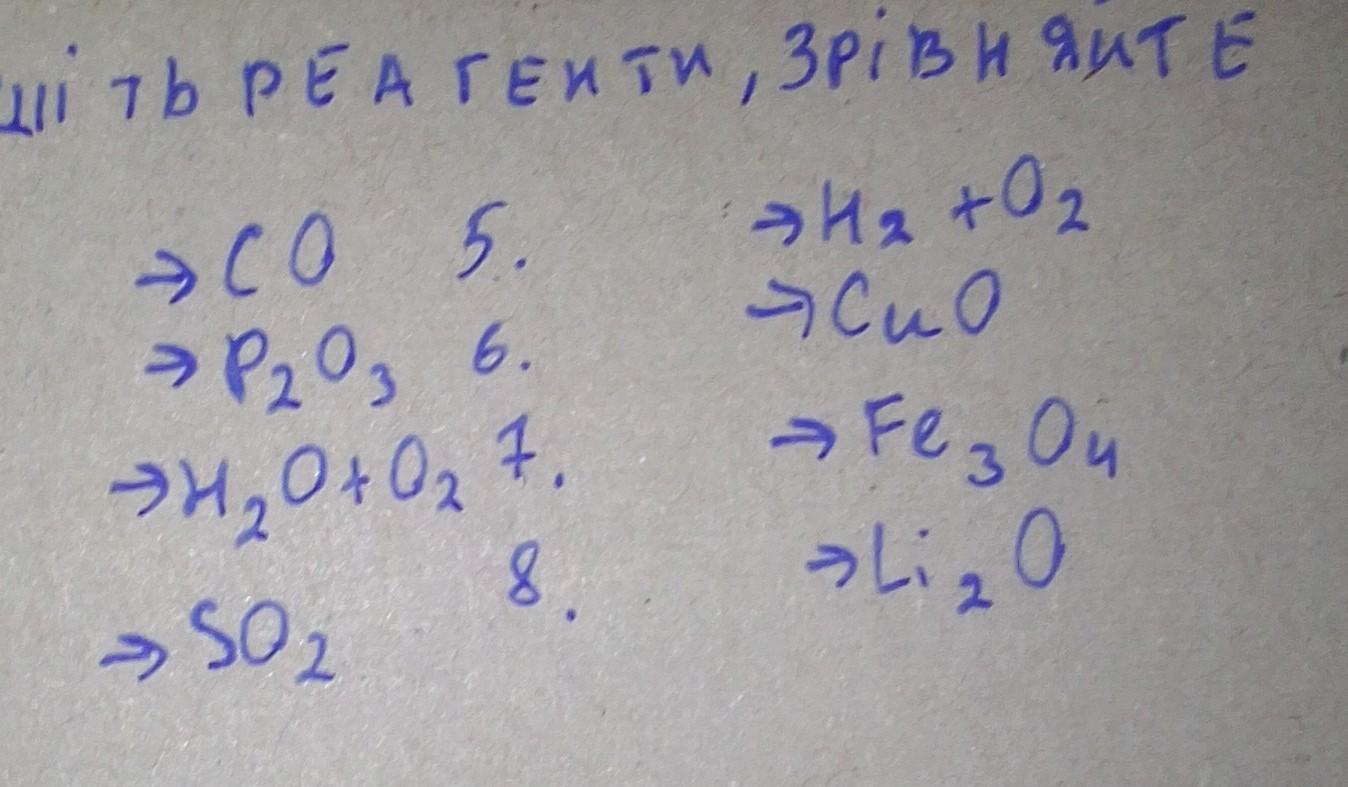 шіть РЕАГЕНТИ, ЗРІВНЯЙТЕ
→ CO 5. → H₂ + O₂
→ P₂O₃ 6. → CuO
→ H₂O + O₂ 7. → Fe₃O₄
→ SO₂ 8. → Li₂O